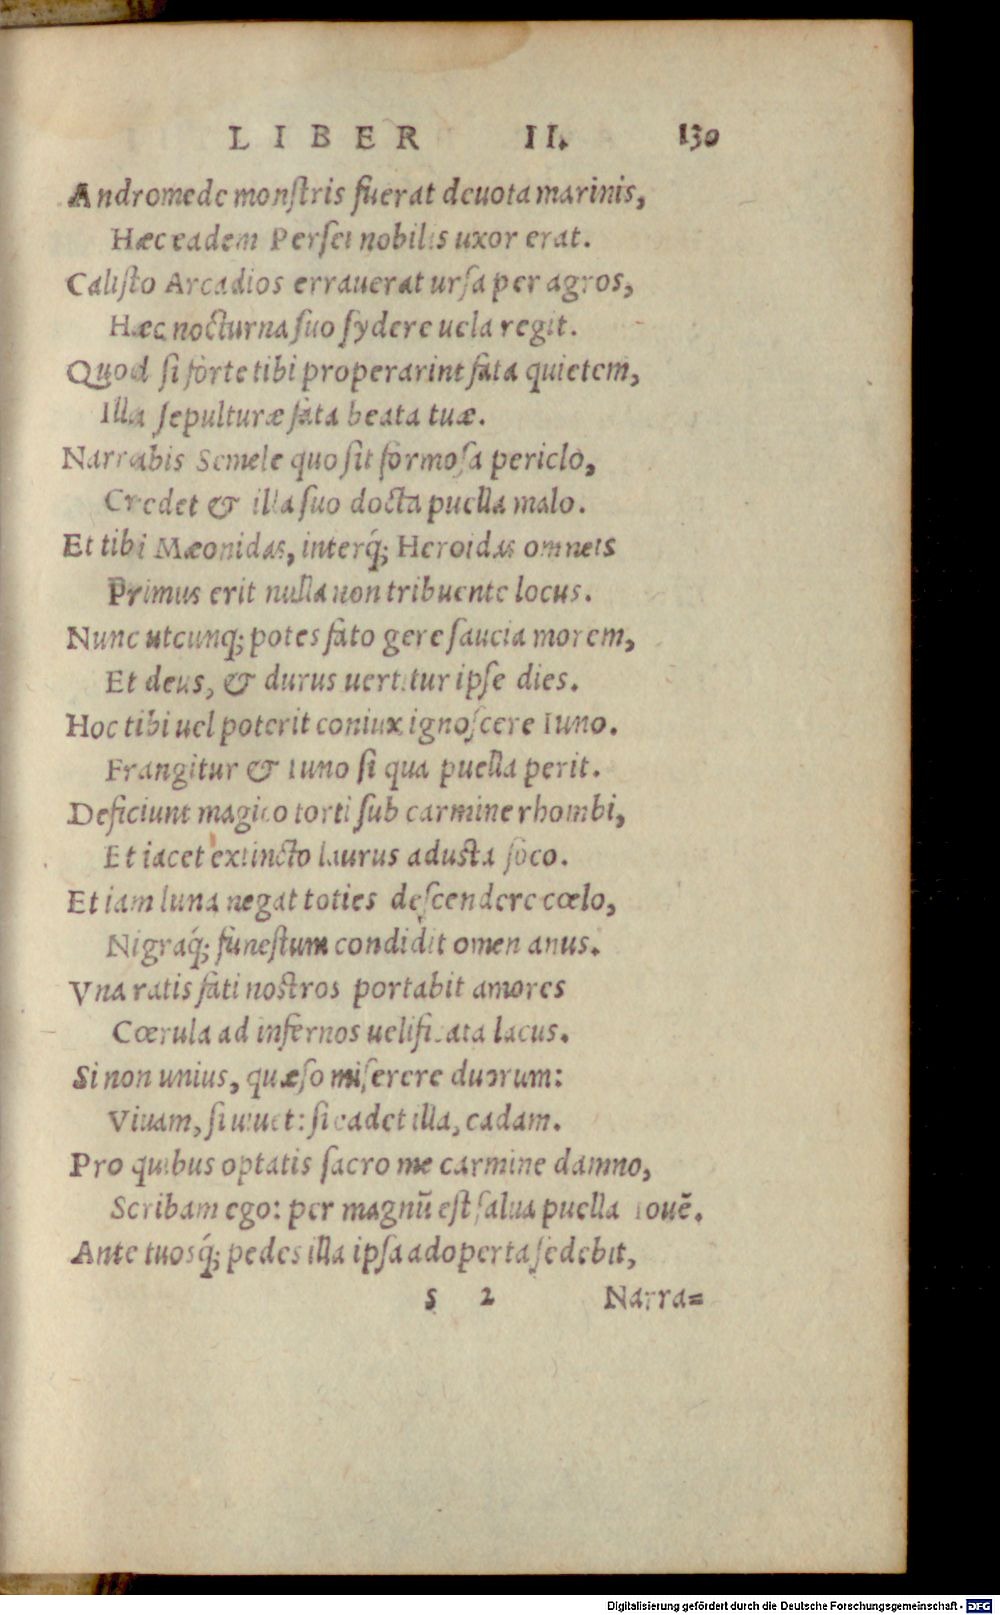 LIBER II. 130
Andromede monstris fuerat deuota marinis,
Hæc eadem Persei nobilis uxor erat.
Calisto Arcadios errauerat ursa per agros,
Hæc nocturna suo sydere uela regit.
Quod si forte tibi properarint fata quietem,
Illa sepulturæ fata beata tuæ.
Narrabis Semele quo sit formosa periclo,
Credet & illa suo docta puella malo.
Et tibi Mæonidas, interq́; Heroidas omneis
Primus erit nulla non tribuente locus.
Nunc utcunq; potes fato gere saucia morem,
Et deus, & durus uertitur ipse dies.
Hoc tibi uel poterit coniux ignoscere Iuno.
Frangitur & Iuno si qua puella perit.
Deficiunt magico torti sub carmine rhombi,
Et iacet extincto laurus adusta foco.
Et iam luna negat toties descendere cœlo,
Nigraq́; funestum condidit omen anus.
Vna ratis fati nostros portabit amores
Cœrula ad infernos uelificata lacus.
Si non unius, quæso miserere duorum:
Viuam, si uiuet: si cadet illa, cadam.
Pro quibus optatis sacro me carmine damno,
Scribam ego: per magnũ est salua puella Iouẽ.
Ante tuosq́; pedes illa ipsa adoperta sedebit,
s 2 Narra=
Digitalisierung gefördert durch die Deutsche Forschungsgemeinschaft - DFG